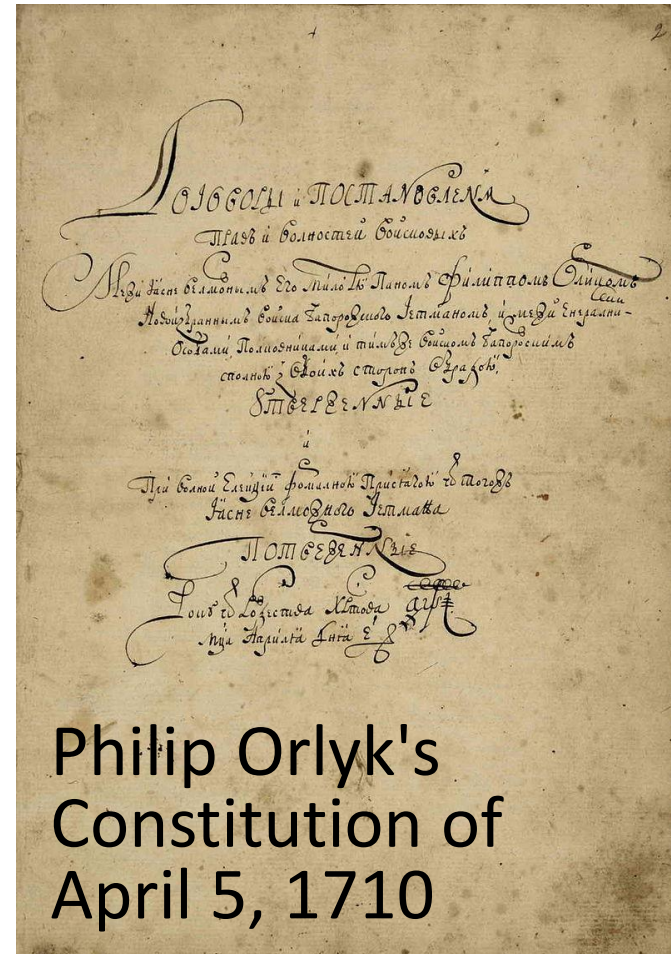 2
Договоры и Постановленя
Правъ и волностей войсковыхъ
Межи Ясне велможнымъ Его Паномъ Филиппомъ Орликомъ
Новоизбраннымъ войска Запорозкого Гетманомъ, и межи Енерални-
ми
Особами, Полковниками, и тимъже войскомъ Запорозскимъ
сполною з обоихъ сторонъ обрадою,
Утверженные
и
При волной Елекціи формалною Присягою ѿ тогожъ
Ясне велможного Гетмана
Потверженные
Року ѿ Рожества Христова
мца Априля дня е҃
Philip Orlyk's
Constitution of
April 5, 1710